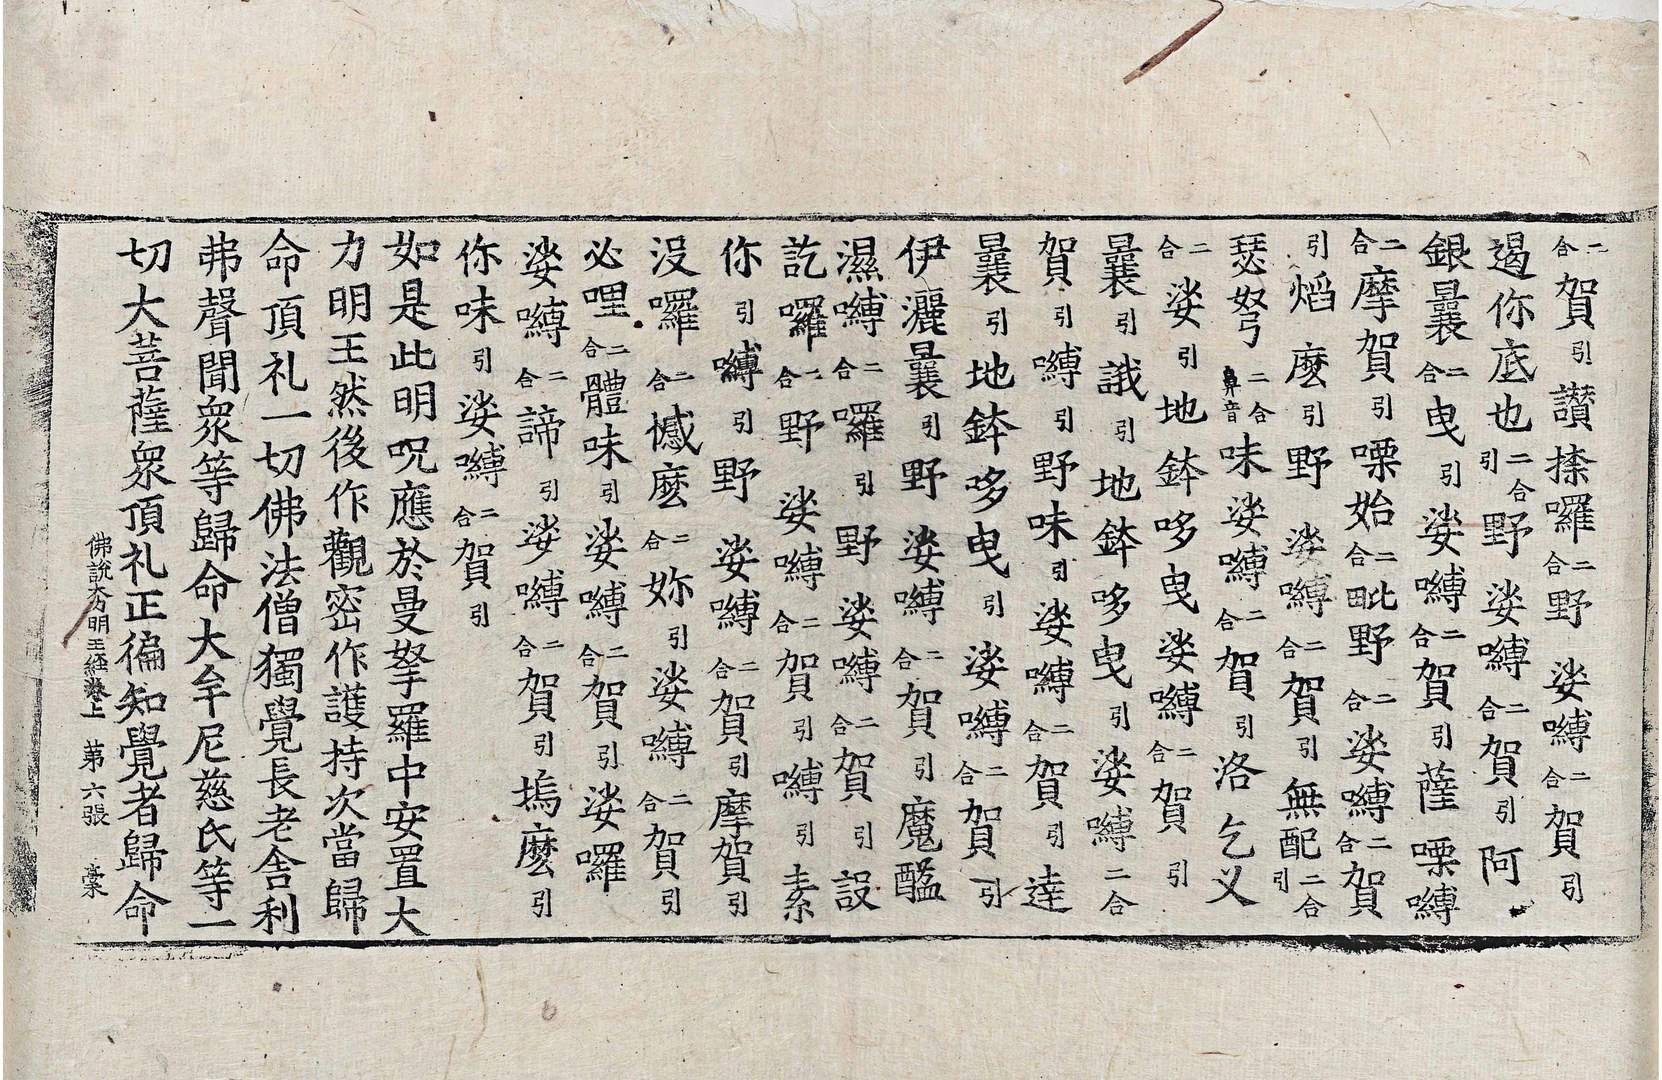 二合賀引讚捺囉二合野娑嚩二合賀引
遏你底也二合引野娑嚩二合賀引阿
銀曩二合曳引娑嚩二合賀引薩㗚嚩
二合摩賀引㗚始二合毗野二合娑嚩二合賀
引熖麽引野娑嚩二合賀引無配二合引
瑟弩二合鼻音味娑嚩二合賀引洛乞义
二合娑引地鉢哆曳娑嚩二合賀引
曩引誐引地鉢哆曳引娑嚩二合
賀引嚩引野味引娑嚩二合賀引達
曩引地鉢哆曳引娑嚩二合賀引
伊灑曩引野娑嚩二合賀引魔醯
濕嚩二合囉引野娑嚩二合賀引設
訖囉二合野娑嚩二合賀引嚩引素
你引嚩引野娑嚩二合賀引摩賀引
没囉二合憾麽二合妳引娑嚩二合賀引
必哩二合體味引娑嚩二合賀引娑囉
娑嚩二合諦引娑嚩二合賀引塢麽引
你味引娑嚩二合賀引
如是此明呪應於曼拏羅中安置大
力明王然後作觀密作護持次當歸
命頂礼一切佛法僧獨覺長老舍利
弗聲聞衆等歸命大牟尼慈氏等一
切大菩薩衆頂礼正徧知覺者歸命
佛說大力明王經卷上 第六張 槀